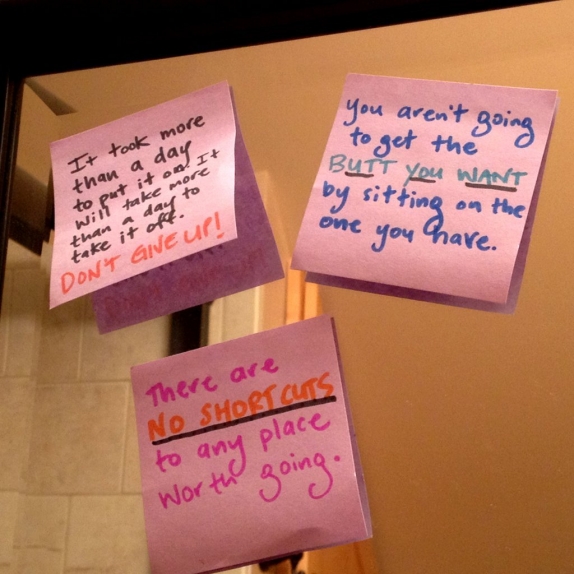 It took more
than a day
to put it on, It
will take more
than a day to
take it off.
DON'T GIVE UP!
you aren't going
to get the
BUTT you WANT
by sitting on the
one you have.
There are
NO SHORTCUTS
to any place
worth going.